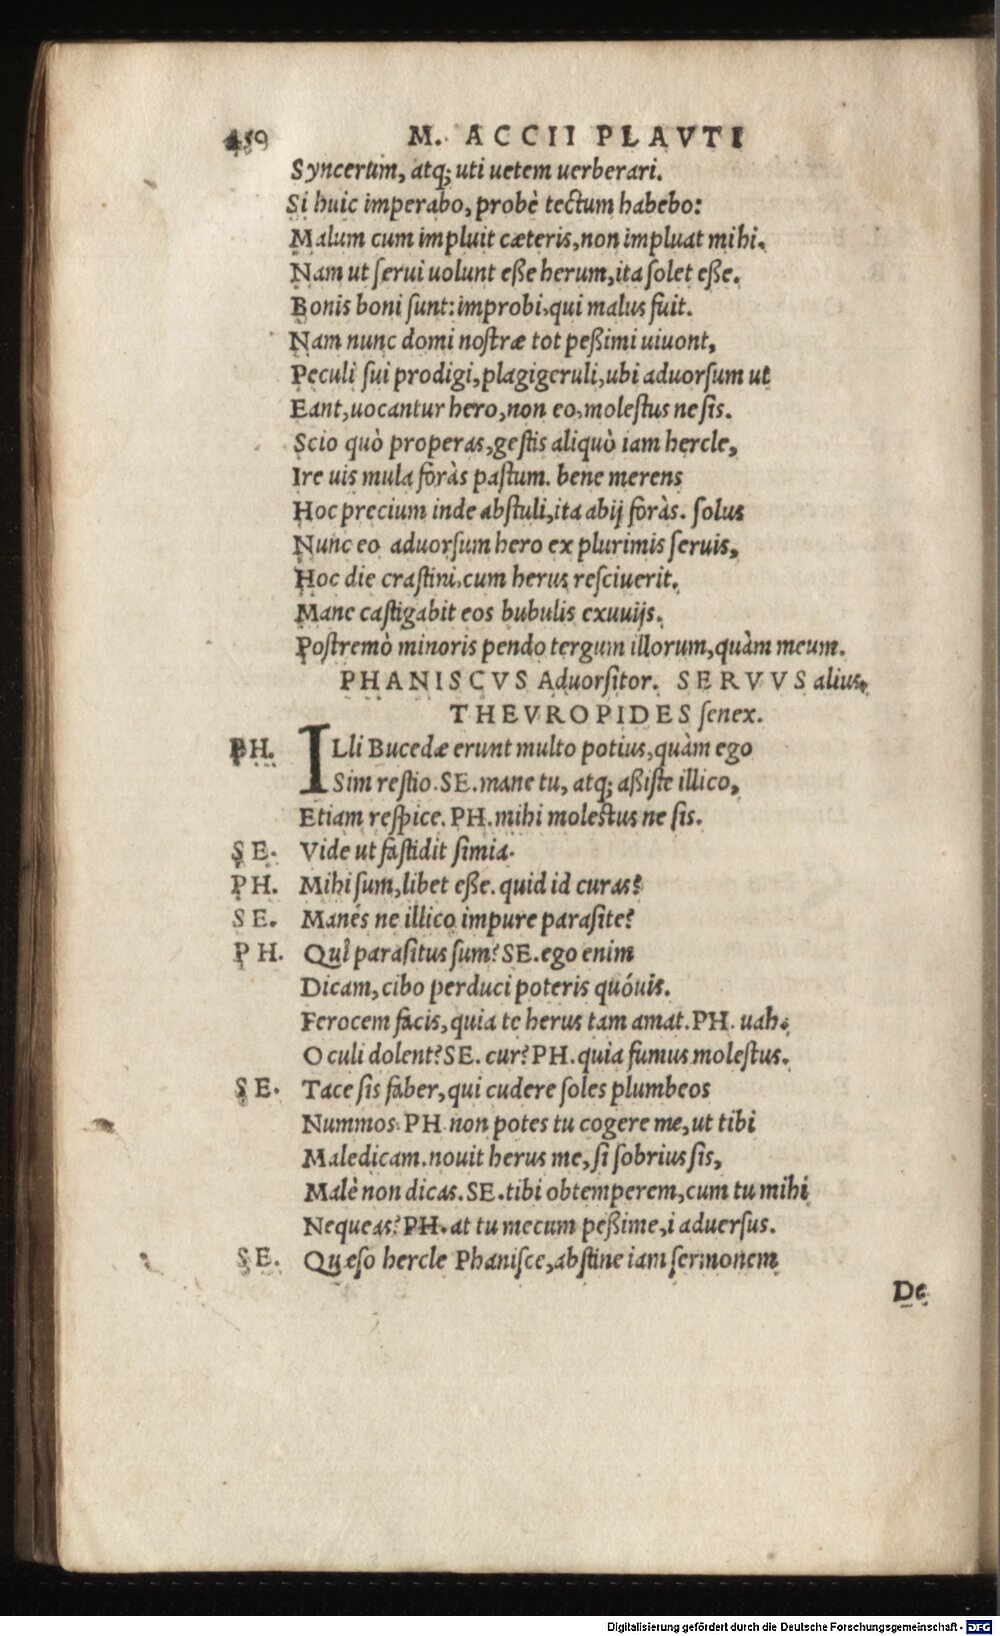 450 M. ACCII PLAVTI
Syncerum, atq; uti uetem uerberari.
Si huic imperabo, probè tectum habebo:
Malum cum impluit cæteris, non impluat mihi.
Nam ut serui uolunt eße herum, ita solet eße.
Bonis boni sunt: improbi, qui malus fuit.
Nam nunc domi nostræ tot peßimi uiuont,
Peculi sui prodigi, plagigeruli, ubi aduorsum ut
Eant, uocantur hero, non eo, molestus ne sis.
Scio quò properas, gestis aliquò iam hercle,
Ire uis mula foràs pastum. bene merens
Hoc precium inde abstuli, ita abij foràs. solus
Nunc eo aduorsum hero ex plurimis seruis,
Hoc die crastini, cum herus resciuerit,
Mane castigabit eos bubulis exuuijs.
Postremò minoris pendo tergum illorum, quàm meum.
PHANISCVS Aduorsitor. SERVVS alius.
THEVROPIDES senex.
PH. ILli Bucedæ erunt multo potius, quàm ego
Sim restio. SE. mane tu, atq; aßiste illico,
Etiam respice. PH. mihi molestus ne sis.
SE. Vide ut fastidit simia.
PH. Mihi sum, libet eße. quid id curas?
SE. Manés ne illico impure parasite?
PH. Quî parasitus sum? SE. ego enim
Dicam, cibo perduci poteris quóuis.
Ferocem facis, quia te herus tam amat. PH. uah.
Oculi dolent? SE. cur? PH. quia fumus molestus.
SE. Tace sis faber, qui cudere soles plumbeos
Nummos. PH. non potes tu cogere me, ut tibi
Maledicam. nouit herus me, si sobrius sis,
Malè non dicas. SE. tibi obtemperem, cum tu mihi
Nequeas? PH. at tu mecum peßime, i aduersus.
SE. Quæso hercle Phanisce, abstine iam sermonem
De
Digitalisierung gefördert durch die Deutsche Forschungsgemeinschaft - DFG